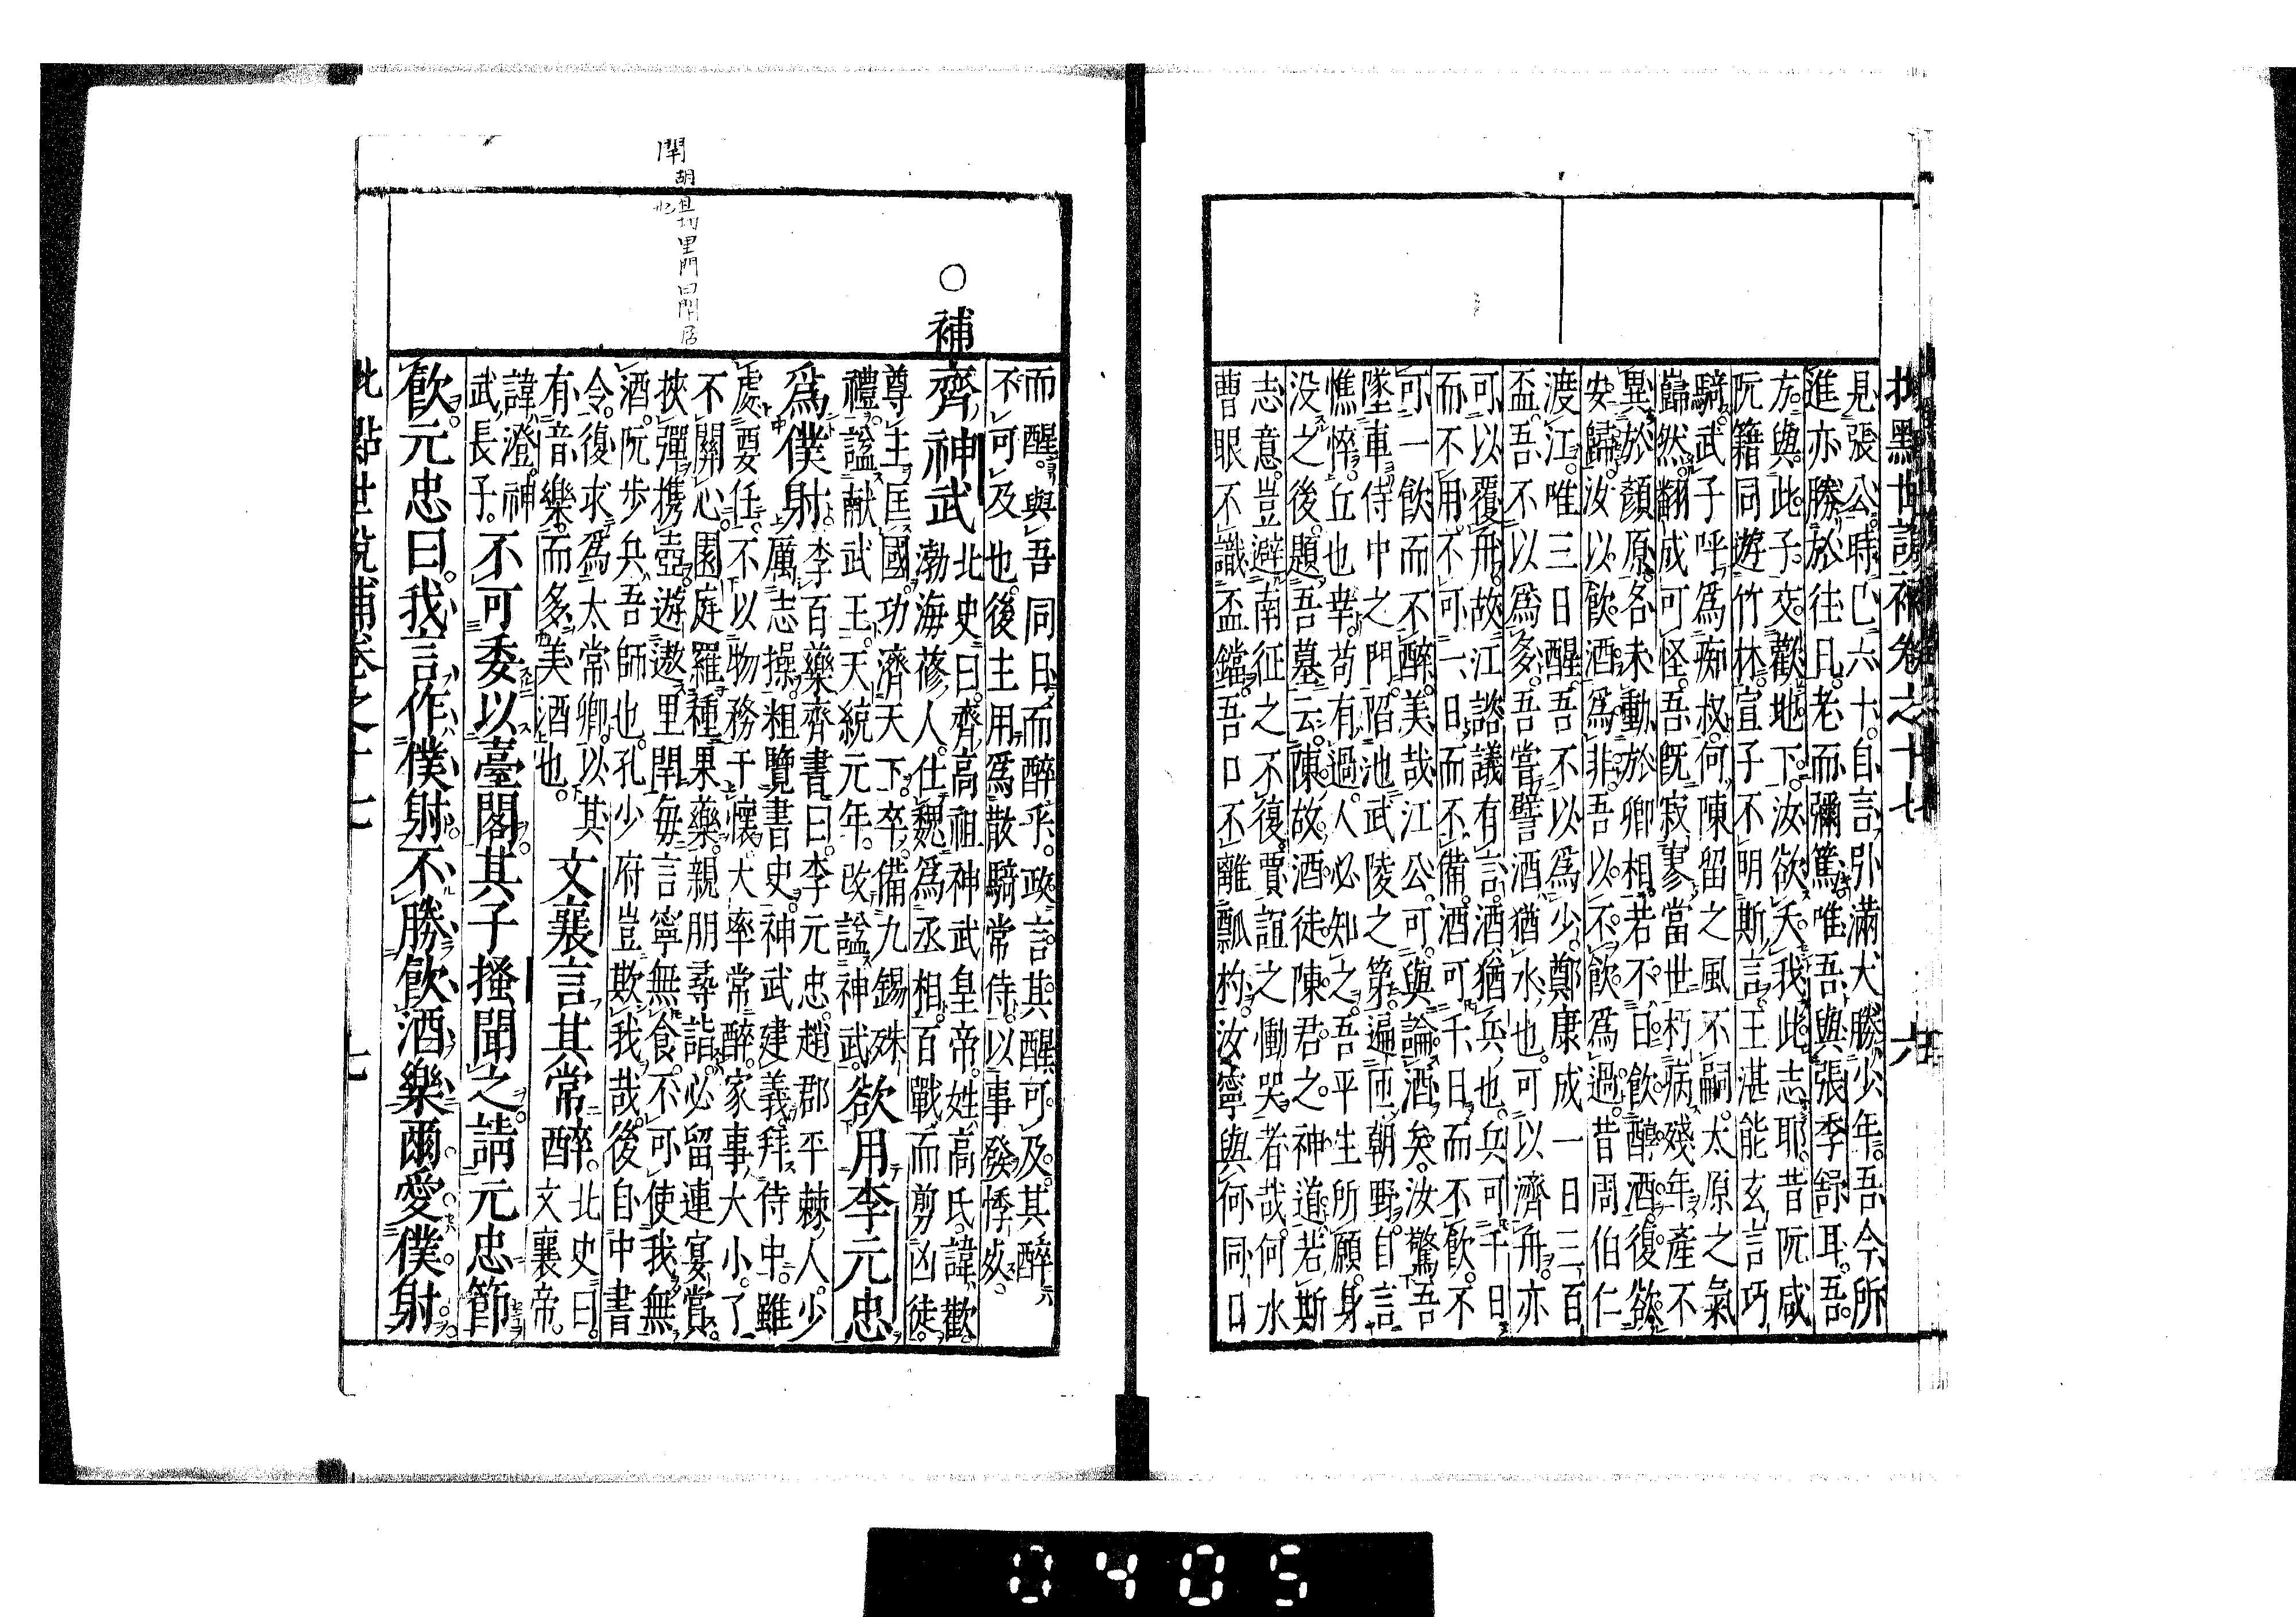 批點世說補卷之十七 六
見張公時已六十自言引滿大勝少年吾今所
進亦勝於往日老而彌篤唯吾與張季舒耳吾
方與此子交歡地下汝欲夭我此志耶昔阮咸
阮籍同遊竹林宣子不明斯言王湛能玄言巧
騎武子呼爲痴叔何陳留之風不嗣太原之氣
巋然翻成可怪吾既寂寥當世朽病殘年產不
異於顏原名未動於卿相若不日飲醇酒復欲
安歸汝以飲酒爲非吾以不飲爲過昔周伯仁
渡江唯三日醒吾不以爲少鄭康成一日三百
盃吾不以爲多吾嘗譬酒猶水也可以濟舟亦
可以覆舟故江諮議有言酒猶兵也兵可千日
而不用不可一日而不備酒可千日而不飲不
可一飲而不醉美哉江公可與論酒矣汝驚吾
墜車侍中之門陷池武陵之第遍匝朝野自言
憔悴丘也幸苟有過人必知之吾平生所願身
没之後題吾墓云陳故酒徒陳君之神道若斯
志意豈避南征之不復賈誼之慟哭者哉何水
曹眼不識盃鐺吾口不離瓢杓汝寧與何同日
而醒與吾同日而醉乎政言其醒可及其醉
不可及也後主用爲散騎常侍以事發悸歿
○補
齊神武
北史曰齊高祖神武皇帝姓高氏諱歡
渤海蓚人仕魏爲丞相百戰而剪凶徒
尊主匡國功濟天下卒備九錫殊
禮諡獻武王天統元年改諡神武
欲用李元忠
爲僕射
李百藥齊書曰李元忠趙郡平棘人少
厲志操粗覽書史神武建義拜侍中雖
處要任不以物務干懷大率常醉家事大小了
不關心園庭羅種果藥親朋尋詣必留連宴賞
挾彈携壺遊遨里閈每言寧無食不可使我無
酒阮步兵吾師也孔少府豈欺我哉後自中書
令復求爲太常卿以其
有音樂而多美酒也
文襄言其常醉
北史曰
文襄帝
諱澄神
武長子
不可委以臺閣其子搔聞之請元忠節
飲元忠曰我言作僕射不勝飲酒樂爾愛僕射
批點世說補卷之十七 七
閈
胡旦切里門曰閈居
也
0405